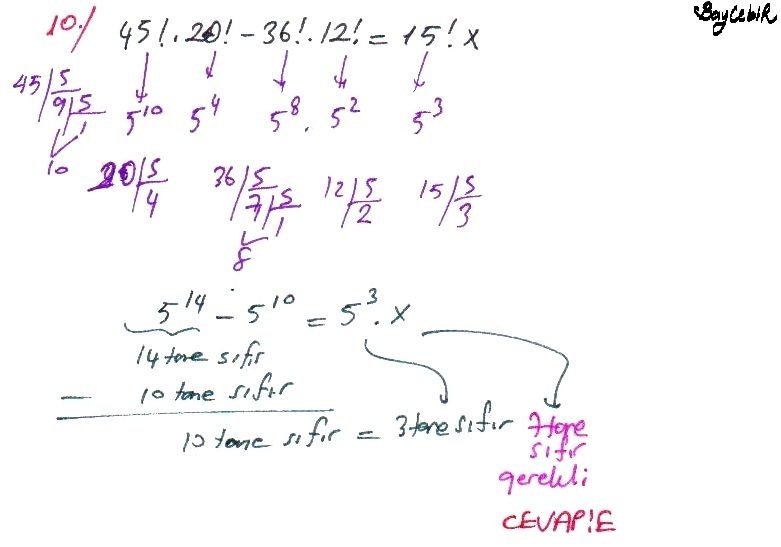 BayCebiR
10./ 45!.20! - 36!.12! = 15! x
5^10 5^4 5^8 . 5^2 5^3
45/5
9/5
1
10
20/5
4
36/5
7/5
1
8
12/5
2
15/5
3
5^14 - 5^10 = 5^3 . x
14 tane sıfır
- 10 tane sıfır
10 tane sıfır = 3 tane sıfır 7 tane
sıfır
gerekli
CEVAP:E